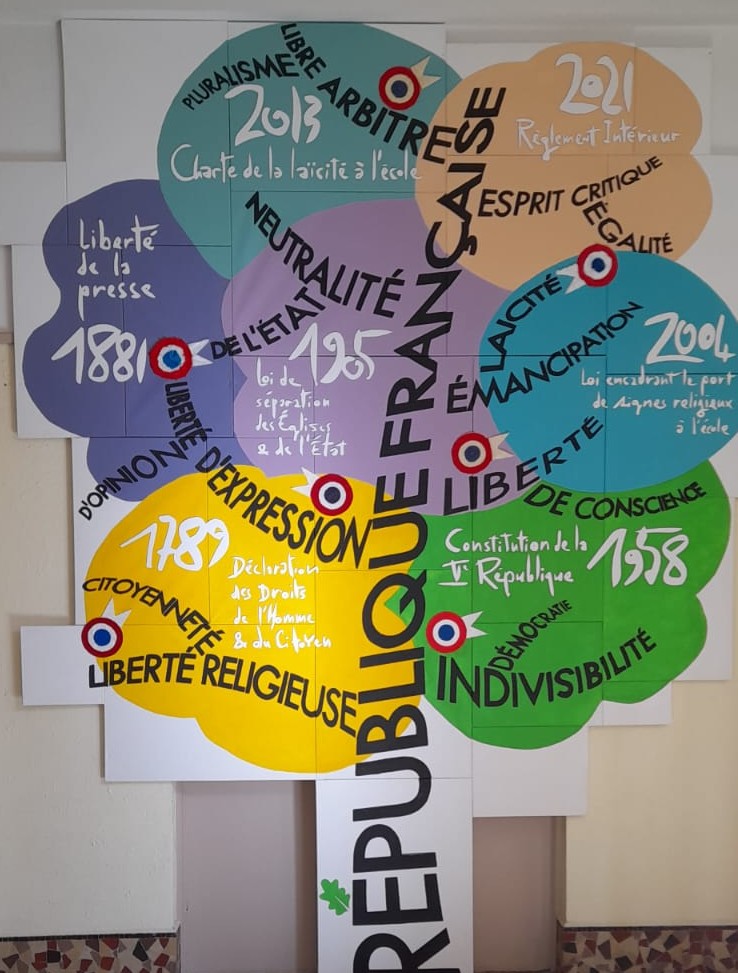 LIBRE ARBITRE
PLURALISME
2013
Charte de la laïcité à l'école
2021
Règlement Intérieur
ESPRIT CRITIQUE
ÉGALITÉ
NEUTRALITÉ
DE L'ÉTAT
Liberté
de la
presse
1881
1905
Loi de
séparation
des Églises
& de l'État
LAICITÉ
ÉMANCIPATION
2004
Loi encadrant le port
de signes religieux
à l'école
LIBERTÉ
DE CONSCIENCE
LIBERTÉ D'EXPRESSION
D'OPINION
1789
Déclaration
des Droits
de l'Homme
& du Citoyen
CITOYENNETÉ
LIBERTÉ RELIGIEUSE
Constitution de la
Vᵉ République
1958
DÉMOCRATIE
INDIVISIBILITÉ
RÉPUBLIQUE FRANÇAISE